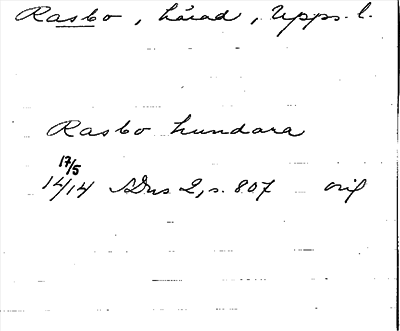 Rasbo, härad, Upps. l.
Rasbo hundara
17/5
1414 SDns 2, s. 807 orig